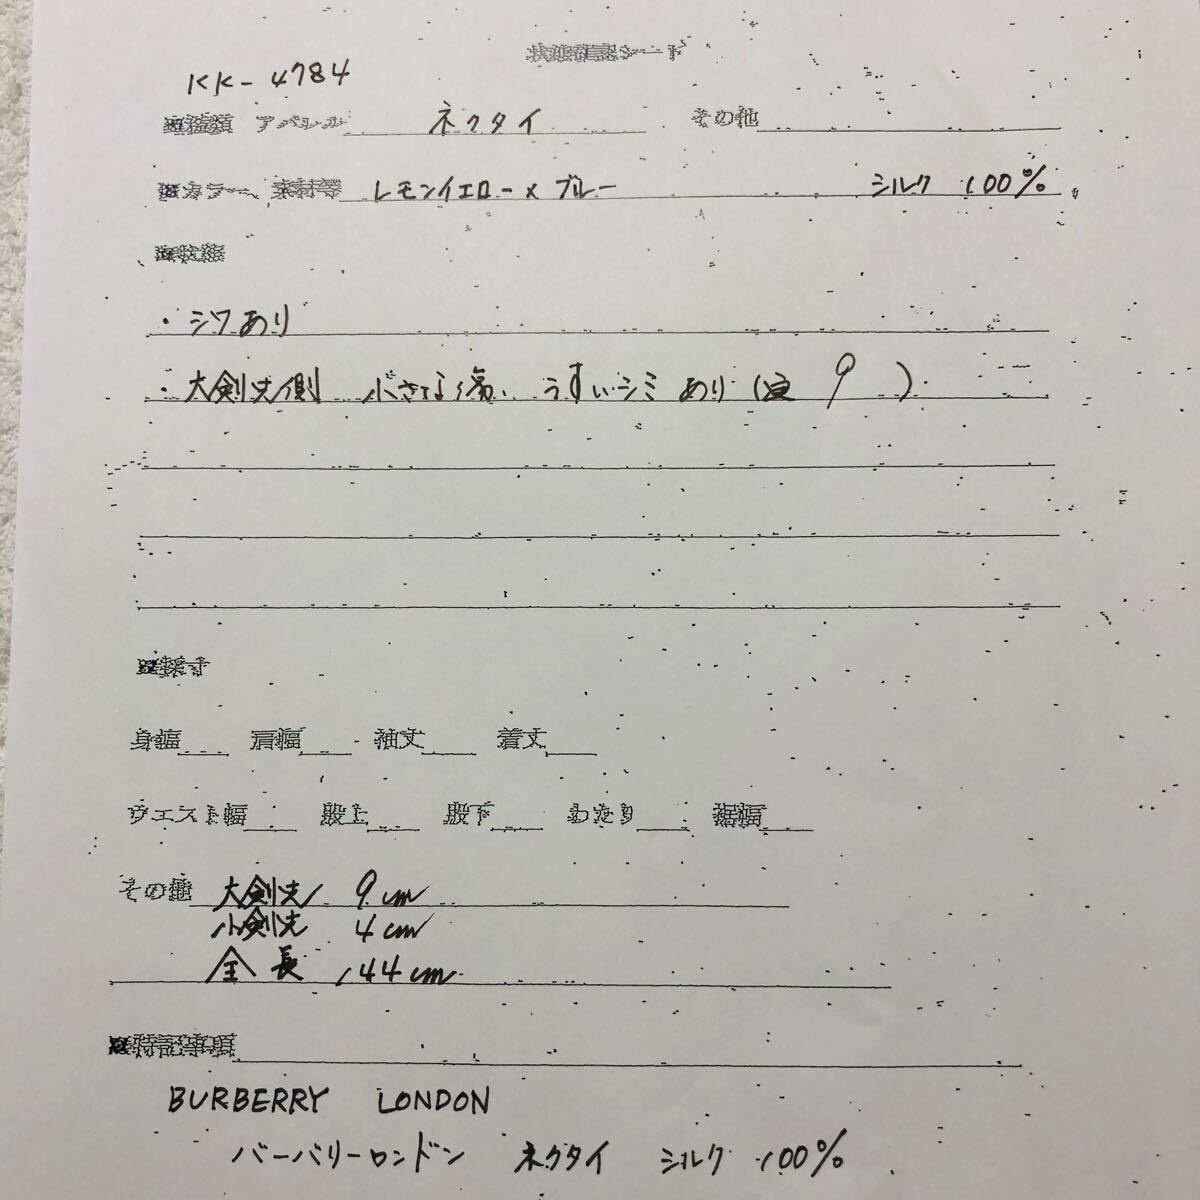 状態確認シート
KK-4784
■種類 アパレル ネクタイ その他
■カラー、素材等 レモンイエロー×ブルー シルク 100%
■状態
・シワあり
・大剣先側 小さな傷、うすいシミあり( 9 )
■採寸
身幅 肩幅 袖丈 着丈
ウエスト幅 股上 股下 わたり 裾幅
その他 大剣先 9cm
小剣先 4cm
全長 144cm
■特記事項
BURBERRY LONDON
バーバリーロンドン ネクタイ シルク 100%